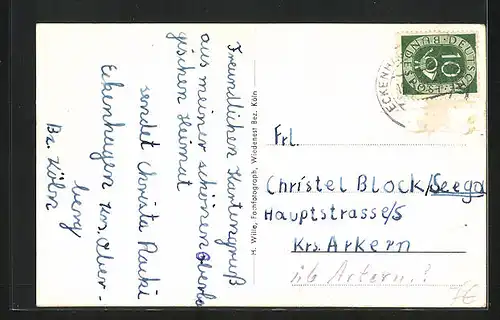 Freundlichen Kartengruß
aus meiner schönen Oberbe
gischen Heimat
sendet Christa Racki
Eckenhagen üb. Ober-
berg
Bz. Köln
H. Wille, Fachfotograph, Wiedenest Bez. Köln
ECKENH
DEUTSCHE BUNDESPOST
10
Frl.
Christel Block/Seega
Hauptstrasse/5
Krs. Arkern
üb Artern.?
7€